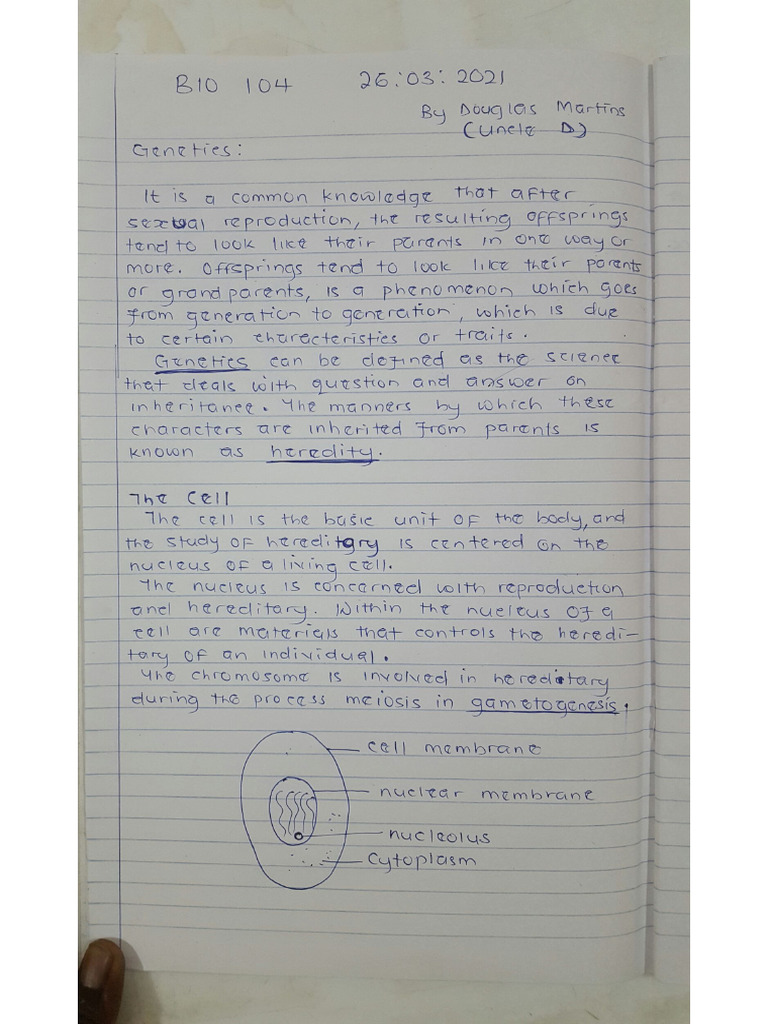 BIO 104 26:03:2021
By Douglas Martins
(Uncle D)
Genetics:
It is a common knowledge that after
sexual reproduction, the resulting offsprings
tend to look like their parents in one way or
more. Offsprings tend to look like their parents
or grandparents, is a phenomenon which goes
from generation to generation, which is due
to certain characteristics or traits.
Genetics can be defined as the science
that deals with question and answer on
inheritance. The manners by which these
characters are inherited from parents is
known as heredity.
The Cell
The cell is the basic unit of the body, and
the study of hereditary is centered on the
nucleus of a living cell.
The nucleus is concerned with reproduction
and hereditary. Within the nucleus of a
cell are materials that controls the heredi-
tary of an individual.
The chromosome is involved in hereditary
during the process meiosis in gametogenesis.
cell membrane
nuclear membrane
nucleolus
cytoplasm